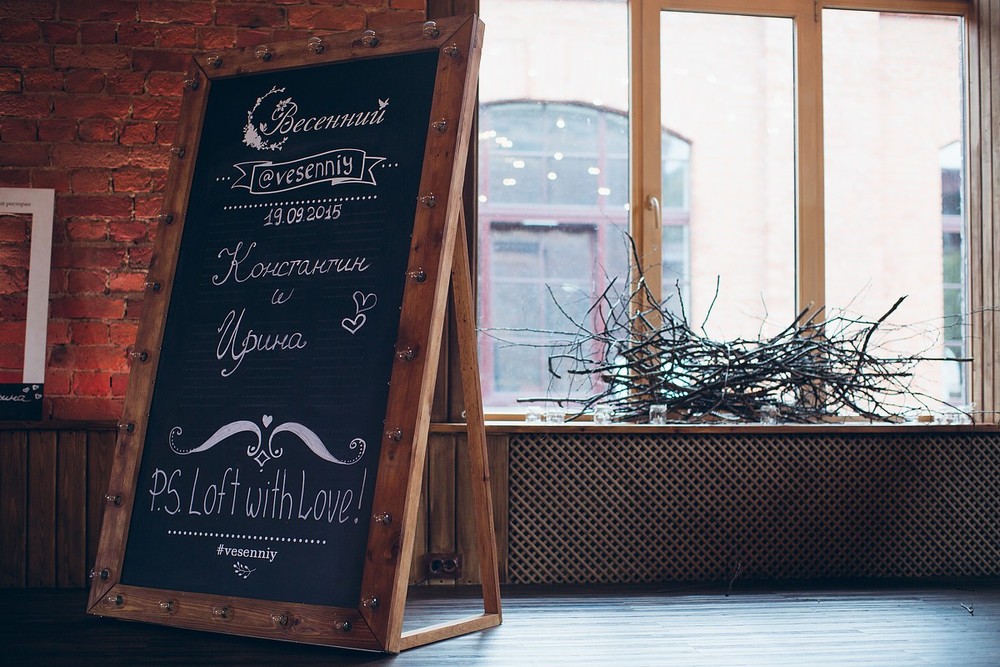 Весенний
@vesenniy
19.09.2015
Константин
и
Ирина
P.S. Loft with Love!
#vesenniy